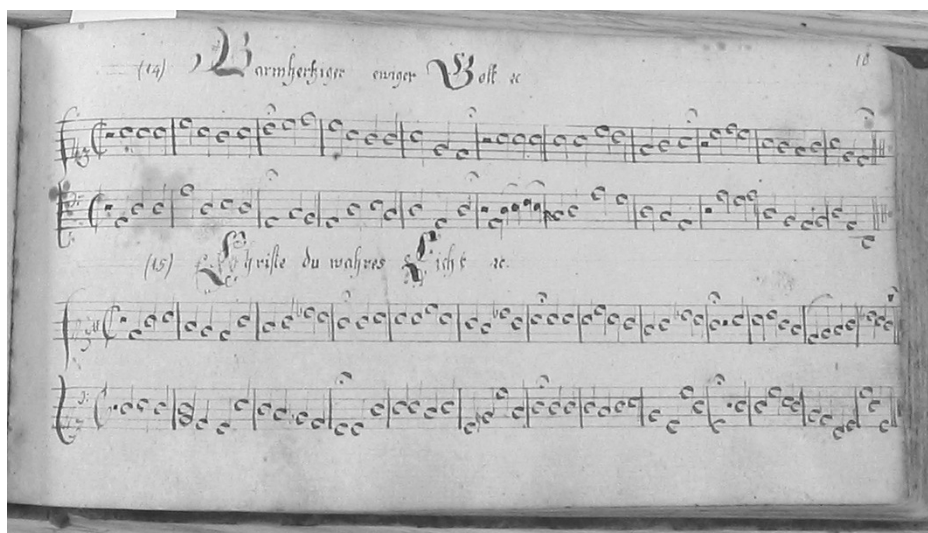 (14) Barmhertziger ewiger Gott ꝛc
18
(15) Christe du wahres Licht ꝛc.